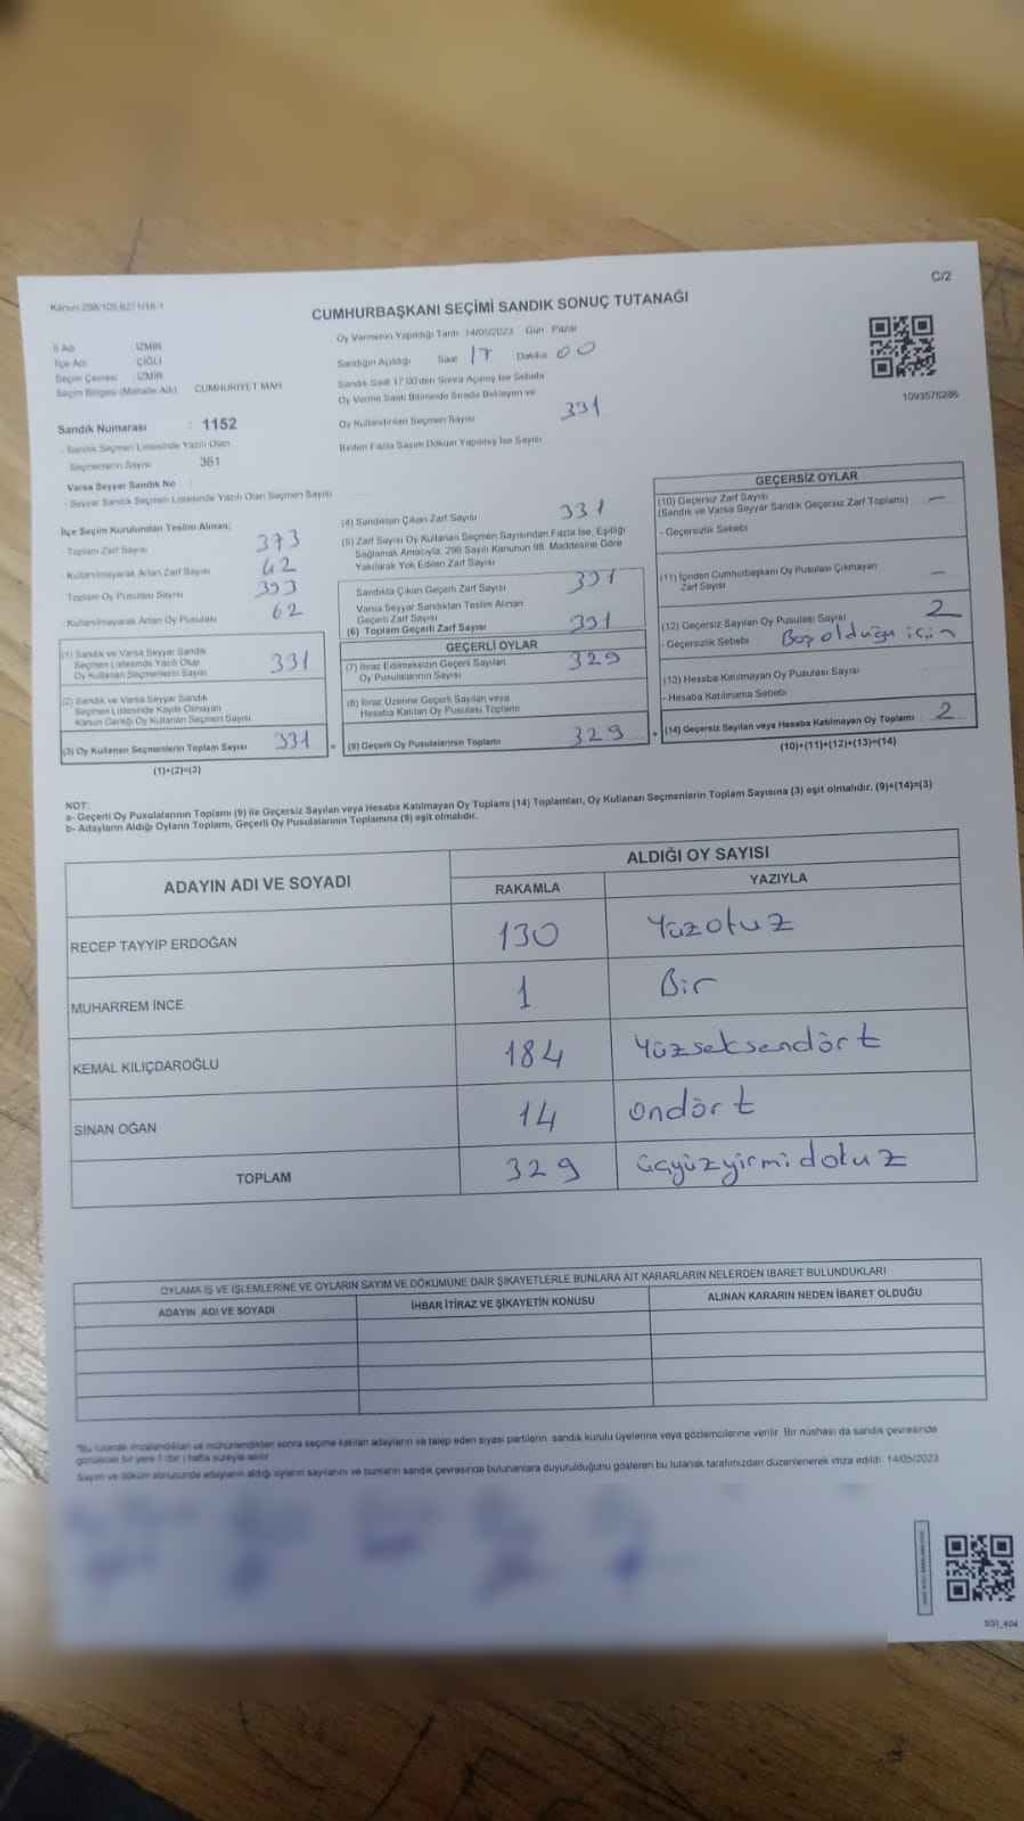 C/2
CUMHURBAŞKANI SEÇİMİ SANDIK SONUÇ TUTANAĞI
Oy Vermenin Yapıldığı Tarih 14/05/2023 Gün Pazar
İl Adı İZMİR
İlçe Adı ÇİĞLİ
Seçim Çevresi İZMİR
Seçim Bölgesi (Mahalle Adı) CUMHURİYET MAH
Sandığın Açıldığı Saat 17 Dakika 00
Sandık Saat 17.00'den Sonra Açılmış İse Sebebi
Oy Verme Saati Bitiminde Sırada Bekleyen ve
Oy Kullandırılan Seçmen Sayısı 331
Birden Fazla Sayım Döküm Yapılmış İse Sayısı
1093576286
Sandık Numarası : 1152
- Sandık Seçmen Listesinde Yazılı Olan
Seçmenlerin Sayısı 361
Varsa Seyyar Sandık No
- Seyyar Sandık Seçmen Listesinde Yazılı Olan Seçmen Sayısı
İlçe Seçim Kurulundan Teslim Alınan;
Toplam Zarf Sayısı 373
- Kullanılmayarak Artan Zarf Sayısı 42
Toplam Oy Pusulası Sayısı 393
- Kullanılmayarak Artan Oy Pusulası 62
(1) Sandık ve Varsa Seyyar Sandık
Seçmen Listesinde Yazılı Olup
Oy Kullanan Seçmenlerin Sayısı 331
(2) Sandık ve Varsa Seyyar Sandık
Seçmen Listesinde Kayıtlı Olmayan
Kanun Gereği Oy Kullanan Seçmen Sayısı
(3) Oy Kullanan Seçmenlerin Toplam Sayısı 331
(1)+(2)=(3)
(4) Sandıktan Çıkan Zarf Sayısı 331
(5) Zarf Sayısı Oy Kullanan Seçmen Sayısından Fazla İse, Eşitliği
Sağlamak Amacıyla, 298 Sayılı Kanunun 98. Maddesine Göre
Yakılarak Yok Edilen Zarf Sayısı
Sandıkta Çıkan Geçerli Zarf Sayısı 331
Varsa Seyyar Sandıktan Teslim Alınan
Geçerli Zarf Sayısı
(6) Toplam Geçerli Zarf Sayısı 331
GEÇERLİ OYLAR
(7) İtiraz Edilmeksizin Geçerli Sayılan
Oy Pusulalarının Sayısı 329
(8) İtiraz Üzerine Geçerli Sayılan veya
Hesaba Katılan Oy Pusulası Toplamı
(9) Geçerli Oy Pusulalarının Toplamı 329
GEÇERSİZ OYLAR
(10) Geçersiz Zarf Sayısı
(Sandık ve Varsa Seyyar Sandık Geçersiz Zarf Toplamı) —
- Geçersizlik Sebebi
(11) İçinden Cumhurbaşkanı Oy Pusulası Çıkmayan
Zarf Sayısı —
(12) Geçersiz Sayılan Oy Pusulası Sayısı 2
- Geçersizlik Sebebi Boş olduğu için
(13) Hesaba Katılmayan Oy Pusulası Sayısı
- Hesaba Katılmama Sebebi
(14) Geçersiz Sayılan veya Hesaba Katılmayan Oy Toplamı 2
(10)+(11)+(12)+(13)=(14)
NOT:
a- Geçerli Oy Pusulalarının Toplamı (9) ile Geçersiz Sayılan veya Hesaba Katılmayan Oy Toplamı (14) Toplamları, Oy Kullanan Seçmenlerin Toplam Sayısına (3) eşit olmalıdır. (9)+(14)=(3)
b- Adayların Aldığı Oyların Toplamı, Geçerli Oy Pusulalarının Toplamına (9) eşit olmalıdır.
ADAYIN ADI VE SOYADI ALDIĞI OY SAYISI
RAKAMLA YAZIYLA
RECEP TAYYİP ERDOĞAN 130 Yüzotuz
MUHARREM İNCE 1 Bir
KEMAL KILIÇDAROĞLU 184 Yüzseksendört
SİNAN OĞAN 14 Ondört
TOPLAM 329 üçyüzyirmidokuz
OYLAMA İŞ VE İŞLEMLERİNE VE OYLARIN SAYIM VE DÖKÜMÜNE DAİR ŞİKAYETLERLE BUNLARA AİT KARARLARIN NELERDEN İBARET BULUNDUKLARI
ADAYIN ADI VE SOYADI İHBAR İTİRAZ VE ŞİKAYETİN KONUSU ALINAN KARARIN NEDEN İBARET OLDUĞU
*Bu tutanak imzalandıktan ve mühürlendikten sonra seçime katılan adayların ve talep eden siyasi partilerin sandık kurulu üyelerine veya gözlemcilerine verilir. Bir nüshası da sandık çevresinde
görülecek bir yere 1 (bir) hafta süreyle asılır
Sayım ve döküm sonucunda adayların aldığı oyların sayılarını ve bunların sandık çevresinde bulunanlara duyurulduğunu gösteren bu tutanak tarafımızdan düzenlenerek imza edildi. 14/05/2023